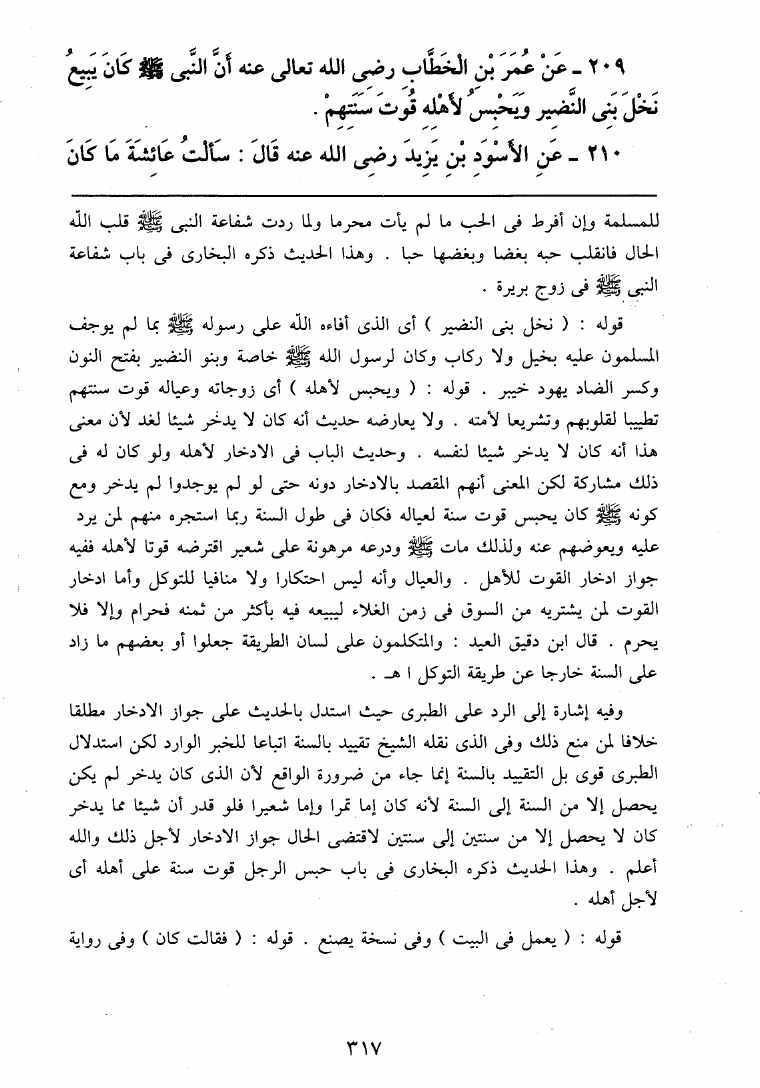 ٢٠٩ ـ عَنْ عُمَرَ بْنِ الْخَطَّابِ رضى الله تعالى عنه أَنَّ النَّبى ﷺ كَانَ يَبِيعُ
نَخْلَ بَنِى النَّضِيرِ وَيَحْبِسُ لأَهْلِهِ قُوتَ سَنَتِهِمْ .
٢١٠ ـ عَنِ الأَسْوَدِ بْنِ يَزِيدَ رضى الله عنه قَالَ : سَأَلْتُ عَائِشَةَ مَا كَانَ
للمسلمة وإن أفرط فى الحب ما لم يأت محرما ولما ردت شفاعة النبى ﷺ قلب الله
الحال فانقلب حبه بغضا وبغضها حبا . وهذا الحديث ذكره البخارى فى باب شفاعة
النبى ﷺ فى زوج بريرة .
قوله : ( نخل بنى النضير ) أى الذى أفاءه الله على رسوله ﷺ بما لم يوجف
المسلمون عليه بخيل ولا ركاب وكان لرسول الله ﷺ خاصة وبنو النضير بفتح النون
وكسر الضاد يهود خيبر . قوله : ( ويحبس لأهله ) أى زوجاته وعياله قوت سنتهم
تطييبا لقلوبهم وتشريعا لأمته . ولا يعارضه حديث أنه كان لا يدخر شيئا لغد لأن معنى
هذا أنه كان لا يدخر شيئا لنفسه . وحديث الباب فى الادخار لأهله ولو كان له فى
ذلك مشاركة لكن المعنى أنهم المقصد بالادخار دونه حتى لو لم يوجدوا لم يدخر ومع
كونه ﷺ كان يحبس قوت سنة لعياله فكان فى طول السنة ربما استجره منهم لمن يرد
عليه ويعوضهم عنه ولذلك مات ﷺ ودرعه مرهونة على شعير اقترضه قوتا لأهله ففيه
جواز ادخار القوت للأهل . والعيال وأنه ليس احتكارا ولا منافيا للتوكل وأما ادخار
القوت لمن يشتريه من السوق فى زمن الغلاء ليبيعه فيه بأكثر من ثمنه فحرام وإلا فلا
يحرم . قال ابن دقيق العيد : والمتكلمون على لسان الطريقة جعلوا أو بعضهم ما زاد
على السنة خارجا عن طريقة التوكل ا هـ .
وفيه إشارة إلى الرد على الطبرى حيث استدل بالحديث على جواز الادخار مطلقا
خلافا لمن منع ذلك وفى الذى نقله الشيخ تقييد بالسنة اتباعا للخبر الوارد لكن استدلال
الطبرى قوى بل التقييد بالسنة إنما جاء من ضرورة الواقع لأن الذى كان يدخر لم يكن
يحصل إلا من السنة إلى السنة لأنه كان إما تمرا وإما شعيرا فلو قدر أن شيئا مما يدخر
كان لا يحصل إلا من سنتين إلى سنتين لاقتضى الحال جواز الادخار لأجل ذلك والله
أعلم . وهذا الحديث ذكره البخارى فى باب حبس الرجل قوت سنة على أهله أى
لأجل أهله .
قوله : ( يعمل فى البيت ) وفى نسخة يصنع . قوله : ( فقالت كان ) وفى رواية
٣١٧